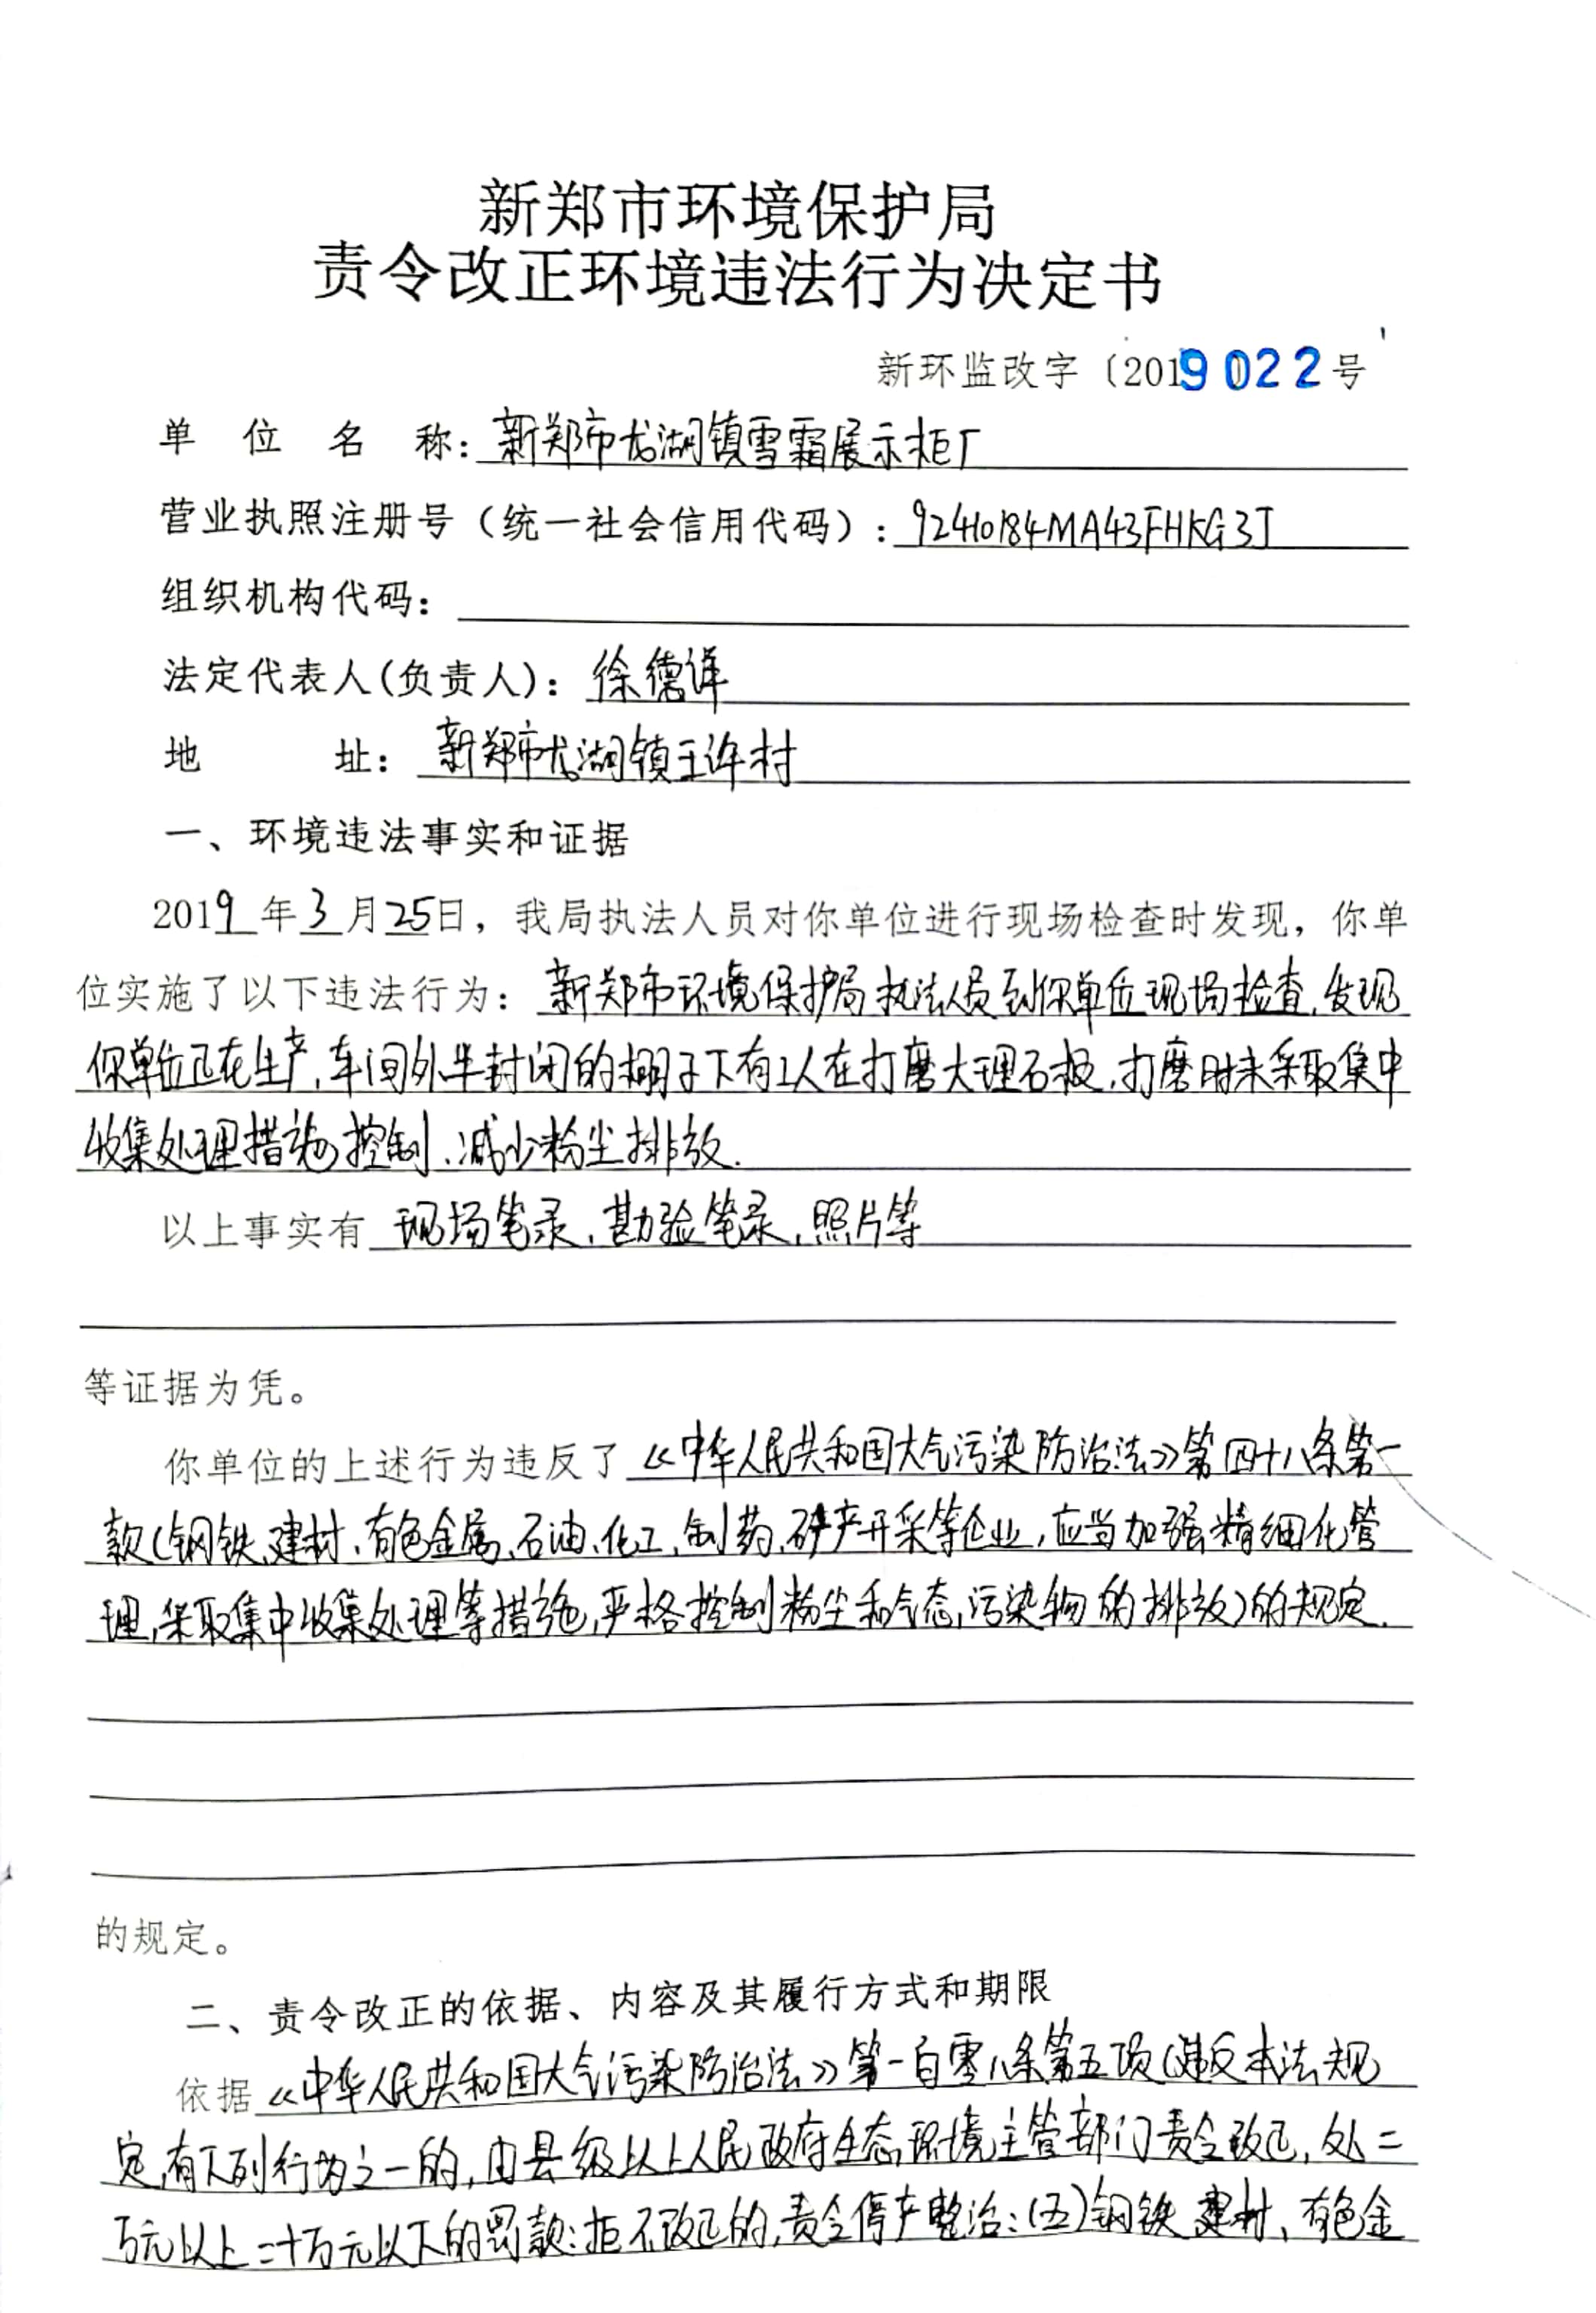 新郑市环境保护局
责令改正环境违法行为决定书
新环监改字〔2019022号
单位名称：新郑市龙湖镇雪霜展示柜厂
营业执照注册号（统一社会信用代码）：92410184MA43FHKG3J
组织机构代码：
法定代表人(负责人)：徐德详
地址：新郑市龙湖镇王许村
一、环境违法事实和证据
2019年3月25日，我局执法人员对你单位进行现场检查时发现，你单
位实施了以下违法行为：新郑市环境保护局执法人员到你单位现场检查，发现
你单位正在生产，车间外半封闭的棚子下有工人在打磨大理石板，打磨时未采取集中
收集处理措施控制、减少粉尘排放.
以上事实有 现场笔录、勘验笔录、照片等
等证据为凭。
你单位的上述行为违反了《中华人民共和国大气污染防治法》第四十八条第一
款（钢铁、建材、有色金属、石油、化工、制药、矿产开采等企业，应当加强精细化管
理，采取集中收集处理等措施，严格控制粉尘和气态污染物的排放）的规定.
的规定。
二、责令改正的依据、内容及其履行方式和期限
依据《中华人民共和国大气污染防治法》第一百零八条第五项（违反本法规
定，有下列行为之一的，由县级以上人民政府生态环境主管部门责令改正，处二
万元以上二十万元以下的罚款；拒不改正的，责令停产整治：（五）钢铁、建材、有色金